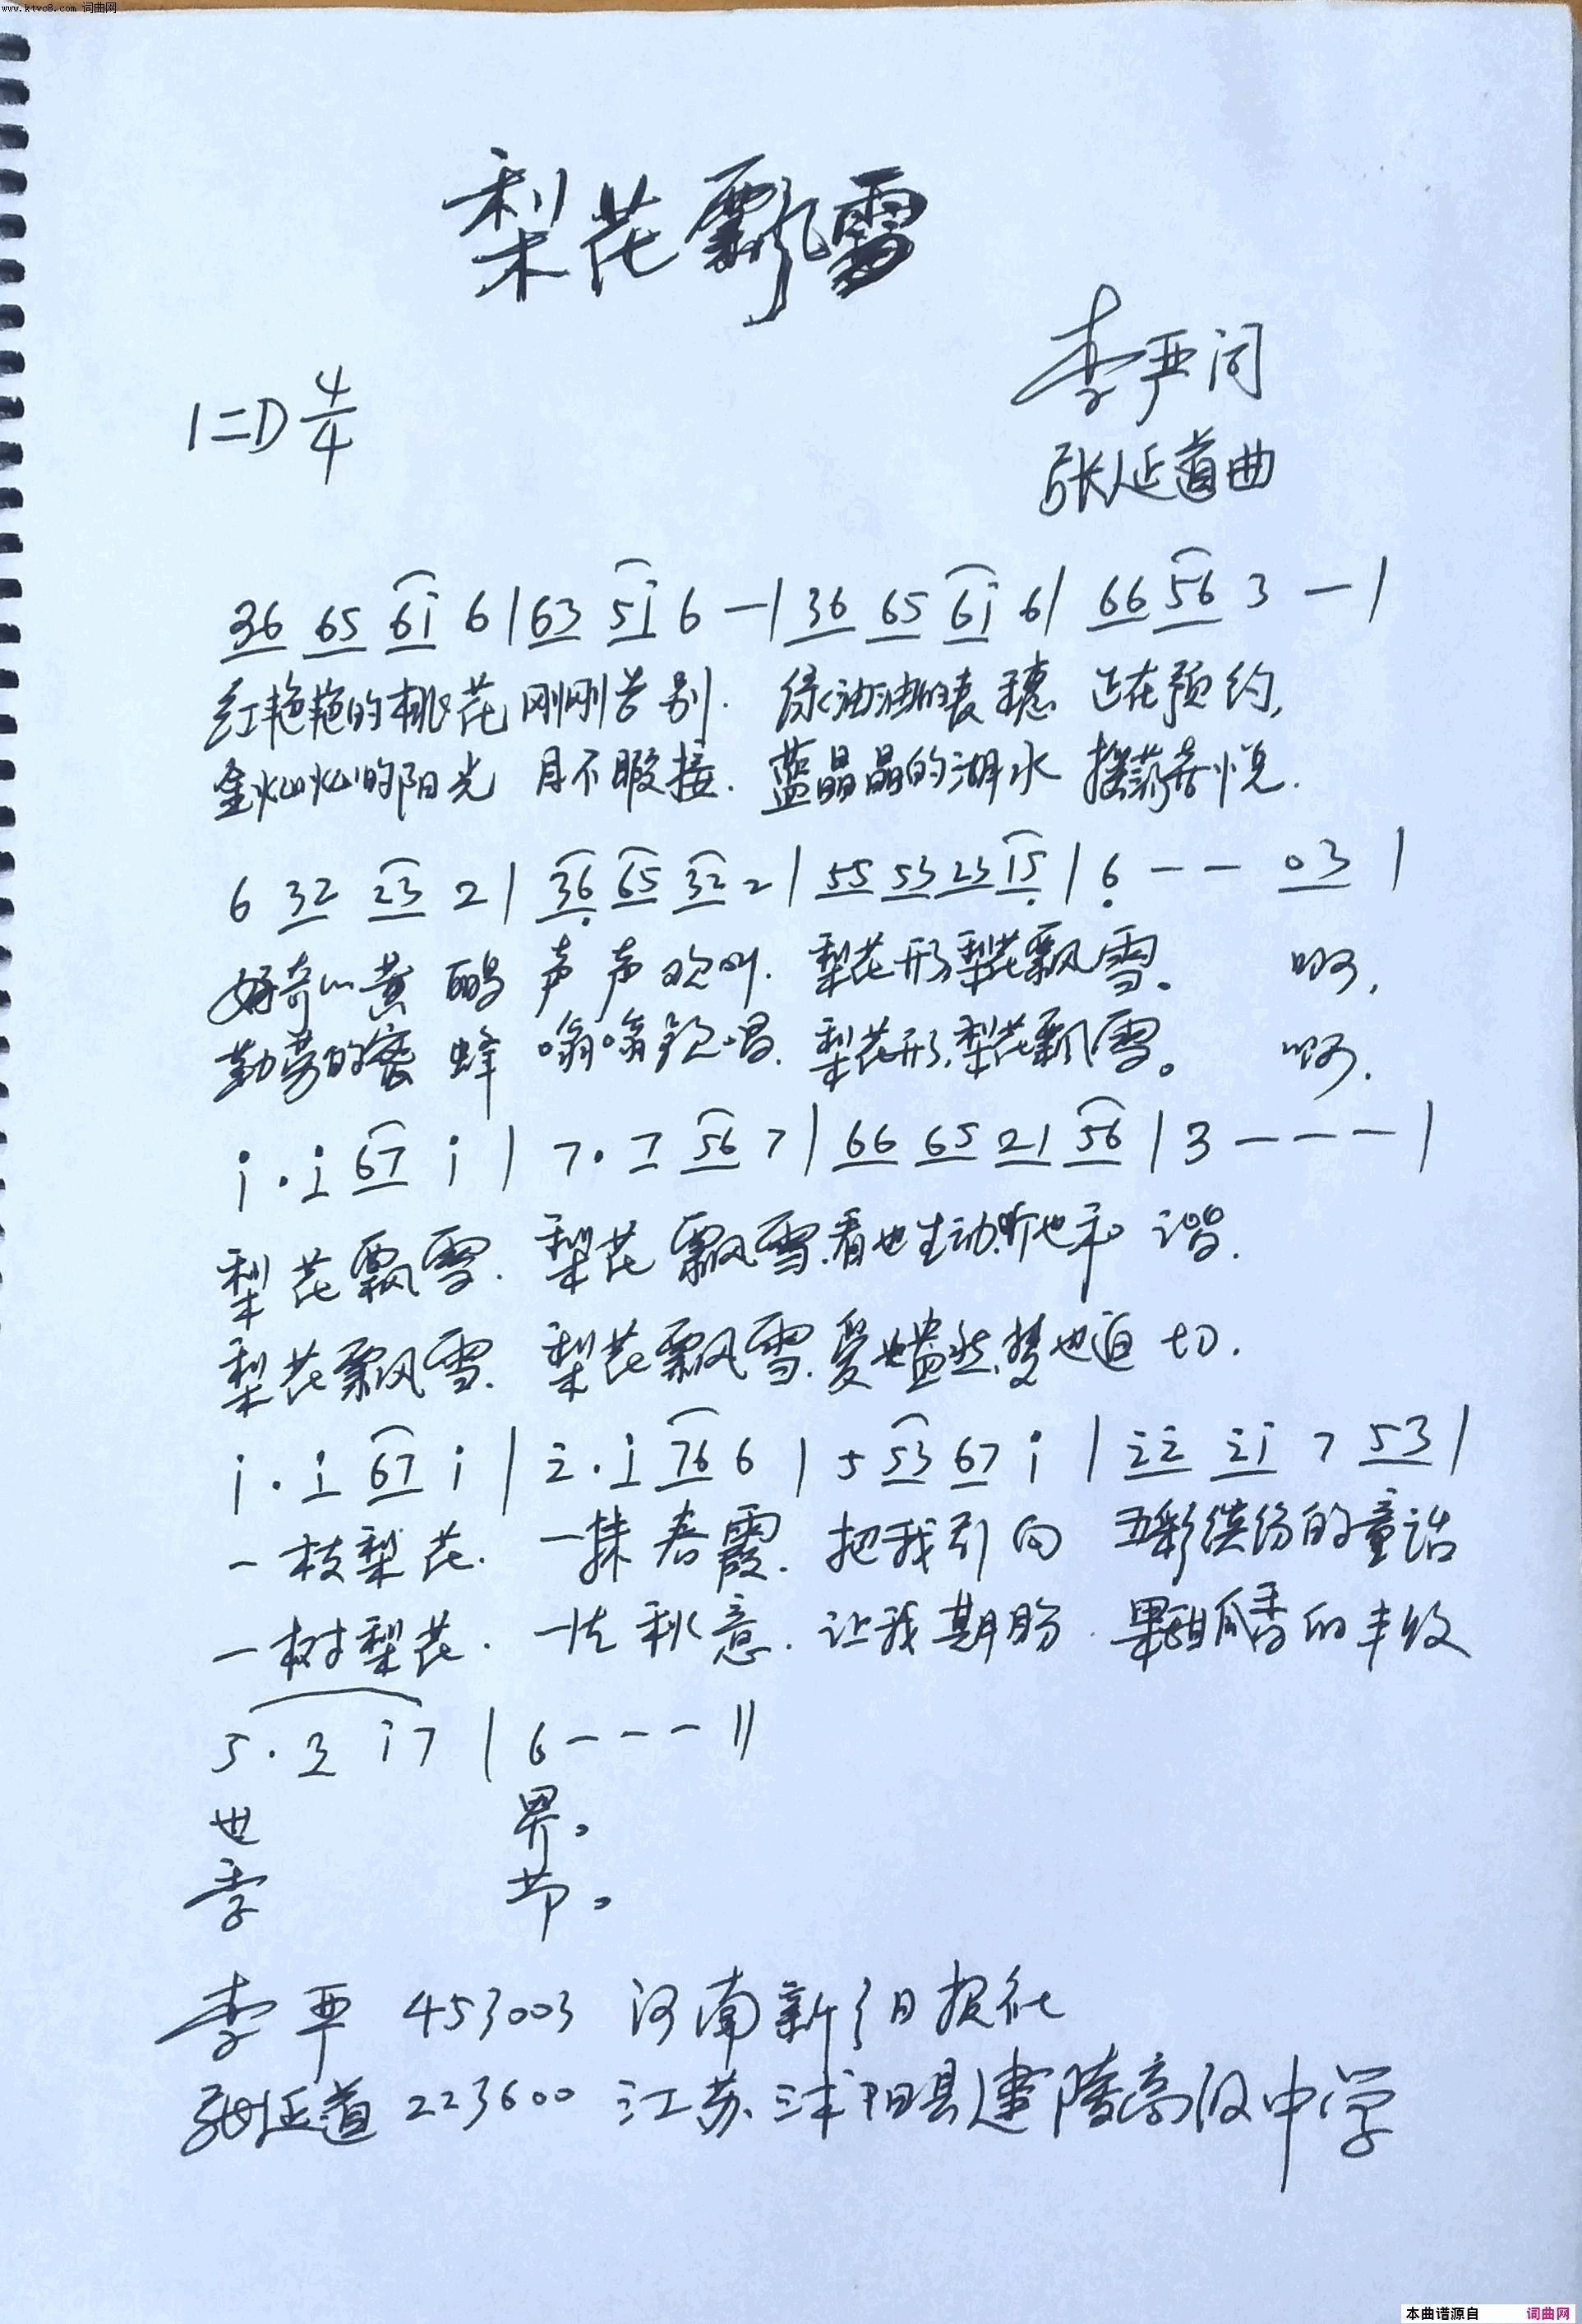 www.ktvc8.com 词曲网
梨花飘雪
李严词
1=D 4/4
张延道曲
36 65 6i 6 | 63 5i 6 — | 36 65 6i 6 | 66 56 3 — |
红艳艳的桃花刚刚告别. 绿油油的麦穗 正在预约,
金灿灿的阳光 目不暇接. 蓝晶晶的湖水 摇荡喜悦.
6 32 23 2 | 36 65 32 2 | 55 53 23 15 | 6 — — 03 |
好奇的黄鹂 声声欢叫. 梨花形梨花飘雪。 啊,
勤劳的蜜蜂 嗡嗡歌唱. 梨花形,梨花飘雪。 啊.
i · i 67 i | 7 · 7 56 7 | 66 65 21 56 | 3 — — — |
梨花飘雪. 梨花飘雪.看也生动.听也和谐.
梨花飘雪. 梨花飘雪.爱也盎然.梦也迫切.
i · i 67 i | 2 · i 76 6 | 5 53 67 i | 22 2i 7 53 |
一枝梨花. 一抹春霞. 把我引向 五彩缤纷的童话
一树梨花. 一片秋意. 让我期盼. 果甜瓜香的丰收
5 · 3 i7 | 6 — — — ||
世 界。
季 节。
李严 453003 河南新乡日报社
张延道 223600 江苏沭阳县建陵高级中学
本曲谱源自 词曲网